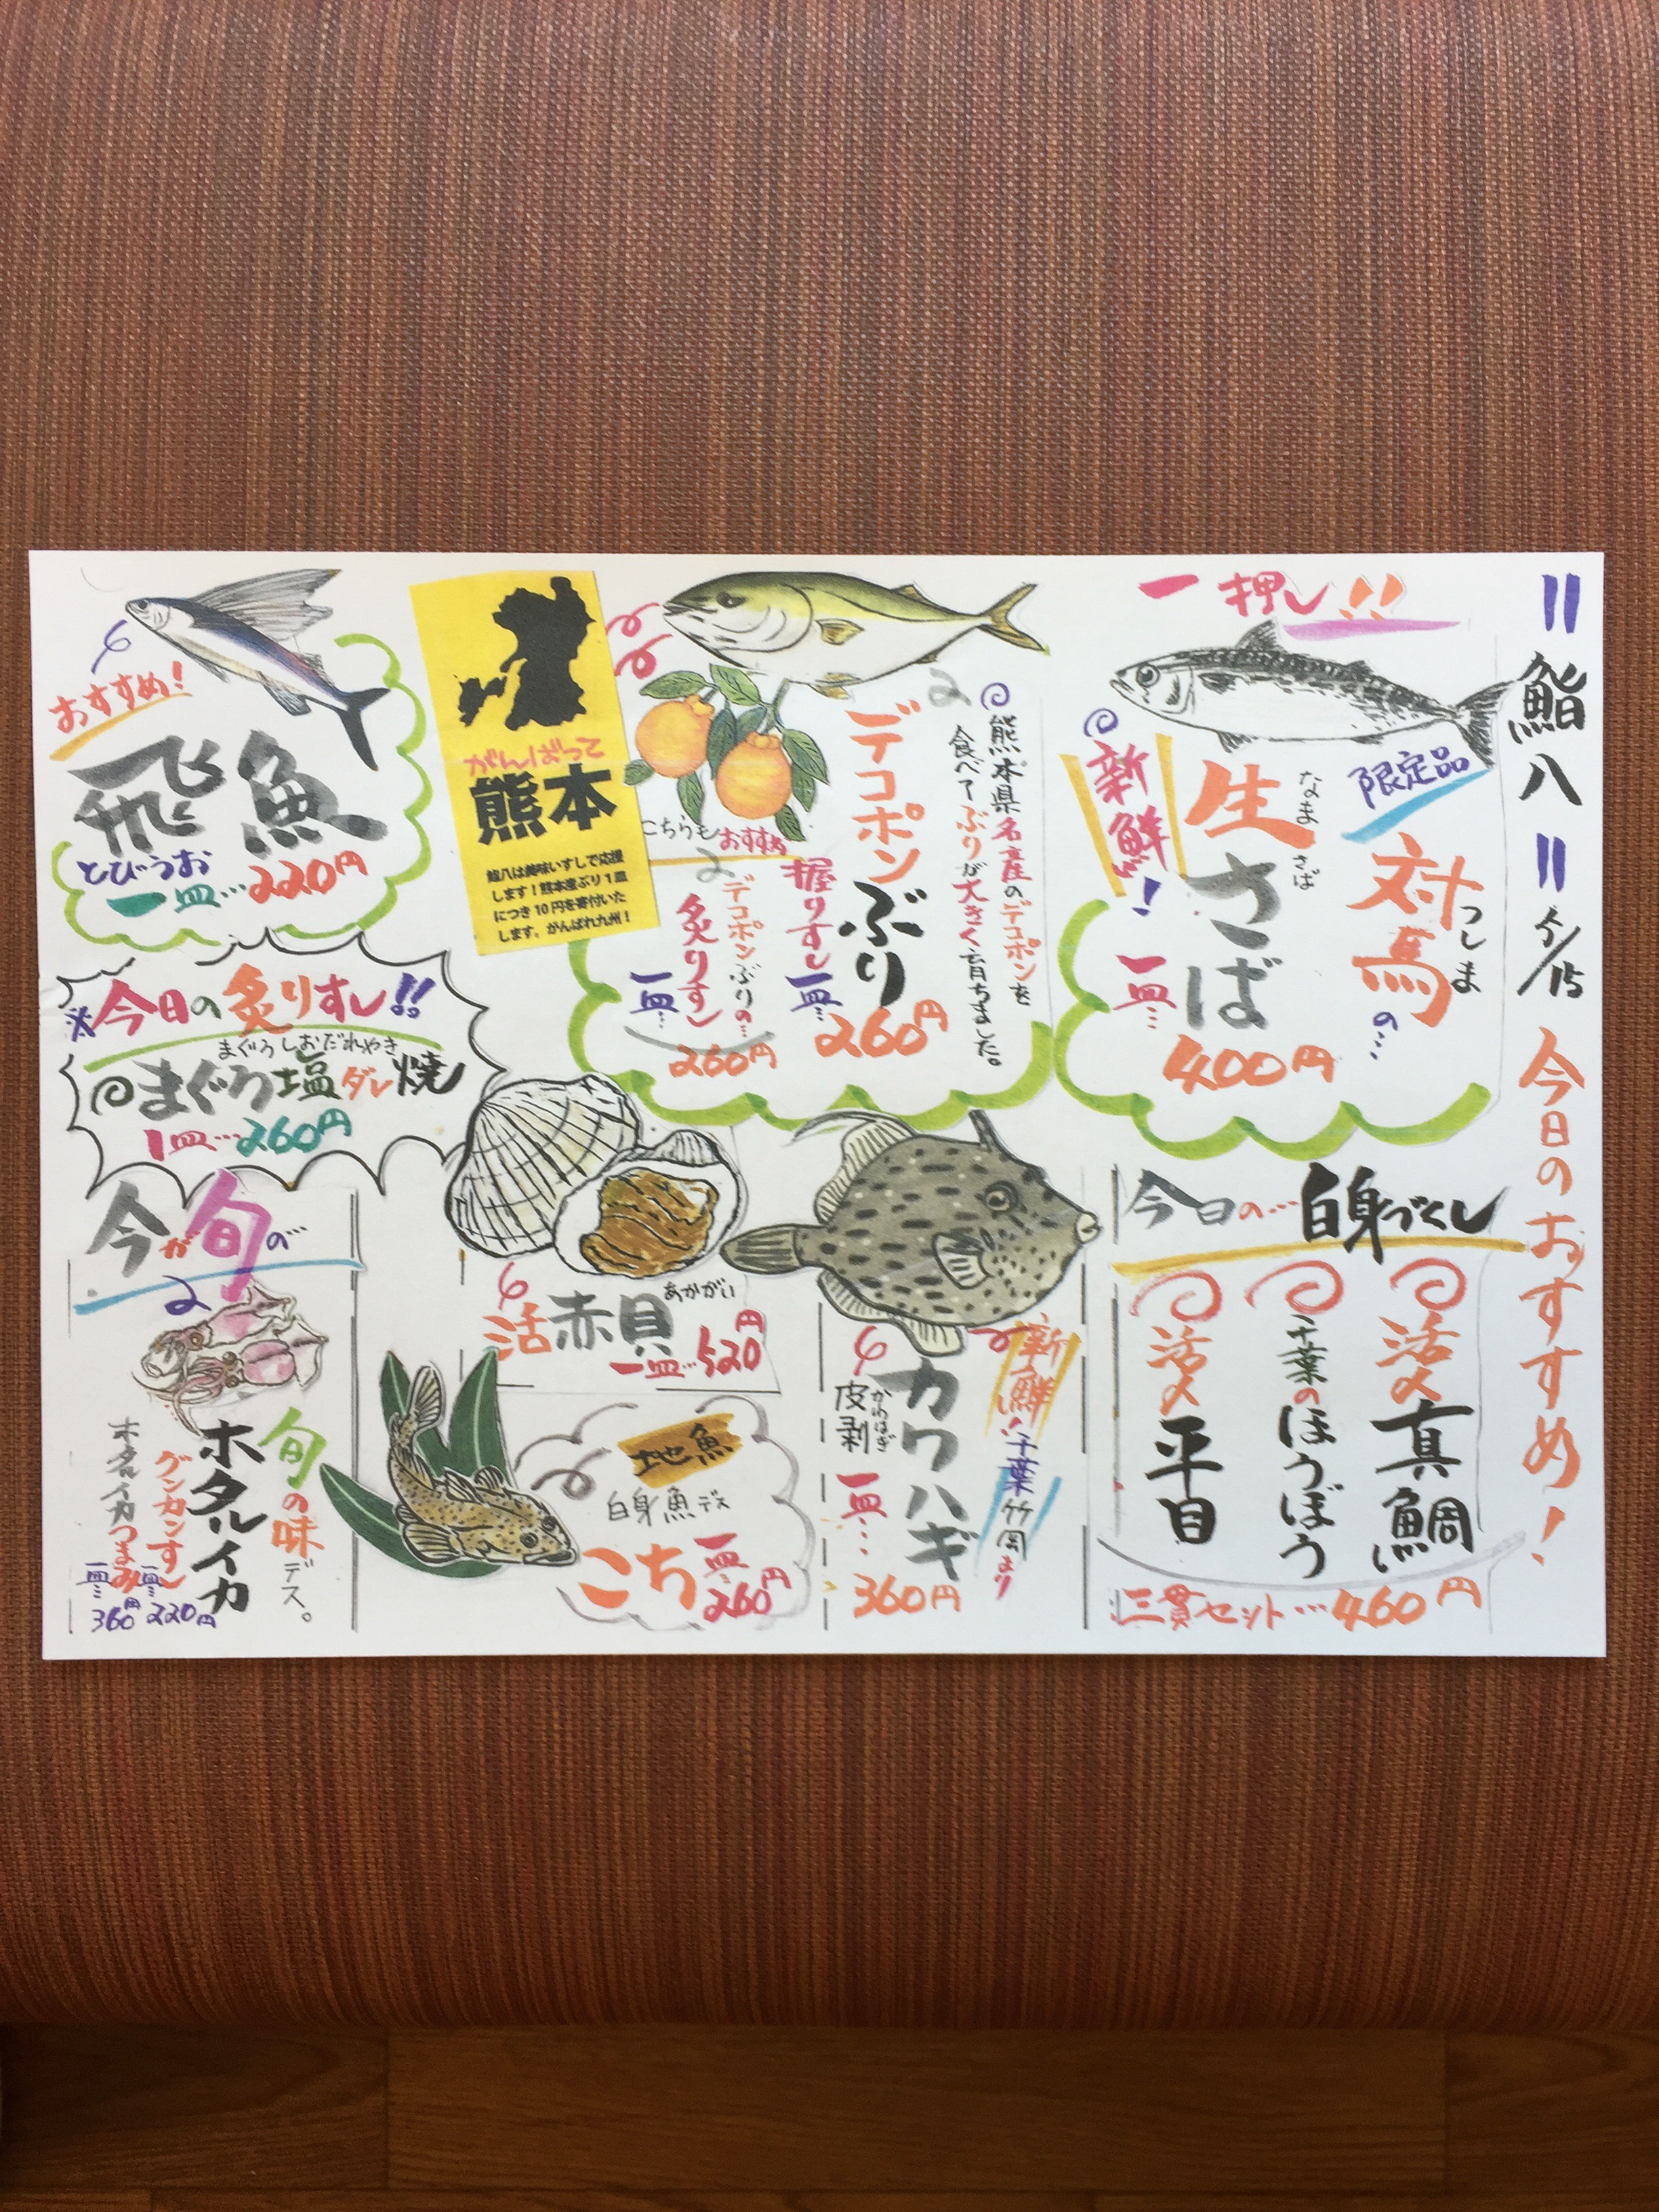 〃鮨八〃 5/15 今日のおすすめ!
一押し!!
限定品
対馬の…
つしま
生さば
なま さば
新鮮!
一皿…
400円
熊本県名産のデコポンを
食べてぶりが大きく育ちました。
デコポンぶり
握りずし
一皿…
260円
こちらもおすすめ
デコポンぶりの…
炙りすし
一皿…
260円
がんばって
熊本
鮨八は美味いすしで応援
します!熊本産ぶり1皿
につき10円を寄付いた
します。がんばれ九州!
おすすめ!
飛魚
とびうお
一皿…220円
※今日の炙りすし!!
まぐろしおだれやき
まぐろ塩ダレ焼
1皿…260円
今日の…白身づくし
活〆真鯛
千葉のほうぼう
活〆平目
三貫セット…460円
新鮮!
千葉竹岡より
カワハギ
かわはぎ
皮剥
一皿…
360円
あかがい
活赤貝
一皿…520円
地魚
白身魚デス
こち
一皿…
260円
今が旬の…
旬の味デス。
ホタルイカ
グンカンすし
一皿…
220円
ホタルイカつまみ
一皿…
360円